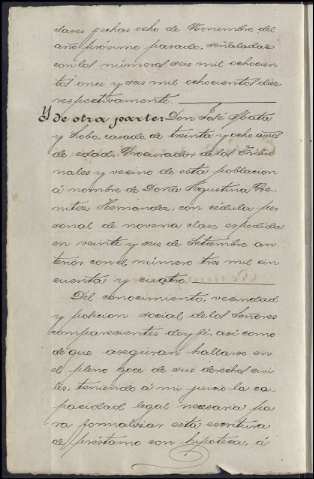 clases fechas ocho de Noviembre del
año próximo pasado, señaladas
con los números seis mil ochocien
tos once y seis mil ochocientos diez
respectivamente.
Y de otra parte: Don José Mata
y Lobo, casado, de treinta y ocho años
de edad, Procurador de los Tribu
nales y vecino de esta población
á nombre de Doña Agustina Be
nitez Hernandez, con cédula per
sonal de novena clase expedida
en veinte y seis de Setiembre an
terior con el número tres mil cin
cuenta y cuatro.
Del conocimiento, vecindad
y posicion social de los Señores
comparecientes doy fé, así como
de que aseguran hallarse en
el pleno goce de sus derechos civi
les, teniendo á mi juicio la ca
pacidad legal necesaria pa
ra formalizar esta escritura
de préstamo con hipoteca, á